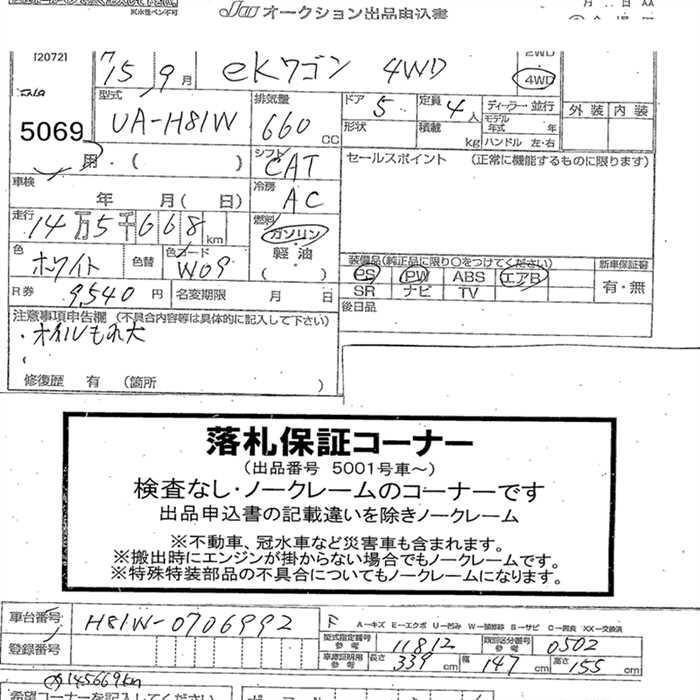 JU オークション出品申込書
120721
15 9月 eKワゴン 4WD
2WD
4WD
5069
型式
UA-H81W
排気量
660 CC
ドア 5
定員 4 人
ディーラー・並行
モデル年式 年
形状
積載 kg
ハンドル 左・右
外装 内装
用・( )
シフト CAT
セールスポイント (正常に機能するものに限ります)
車検
年 月( 日)
冷房 AC
走行
14万5千668km
燃料
ガソリン
軽油
( )
色
ホワイト
色替
色コード
W09
装備品(純正品に限り○をつけてください)
新車保証書
PS PW ABS エアB
SR ナビ TV
有・無
R券 9,540円
名変期限 月 日
後日品
注意事項申告欄 (不具合内容等は具体的に記入して下さい)
・オイルもれ大
修復歴 有 (箇所 )
落札保証コーナー
(出品番号 5001号車~)
検査なし・ノークレームのコーナーです
出品申込書の記載違いを除きノークレーム
※不動車、冠水車など災害車も含まれます。
※搬出時にエンジンが掛からない場合でもノークレームです。
※特殊特装部品の不具合についてもノークレームになります。
車台番号 H81W-0706992
F A-キズ E-エクボ U-凹み W-補修跡 S-サビ C-腐食 XX-交換済
型式指定番号 参考 11812
類別区分番号 参考 0502
登録番号
車庫証明用 参考 長さ 339cm 幅 147cm 高さ 155cm
145669km
希望コーナーを記入してください